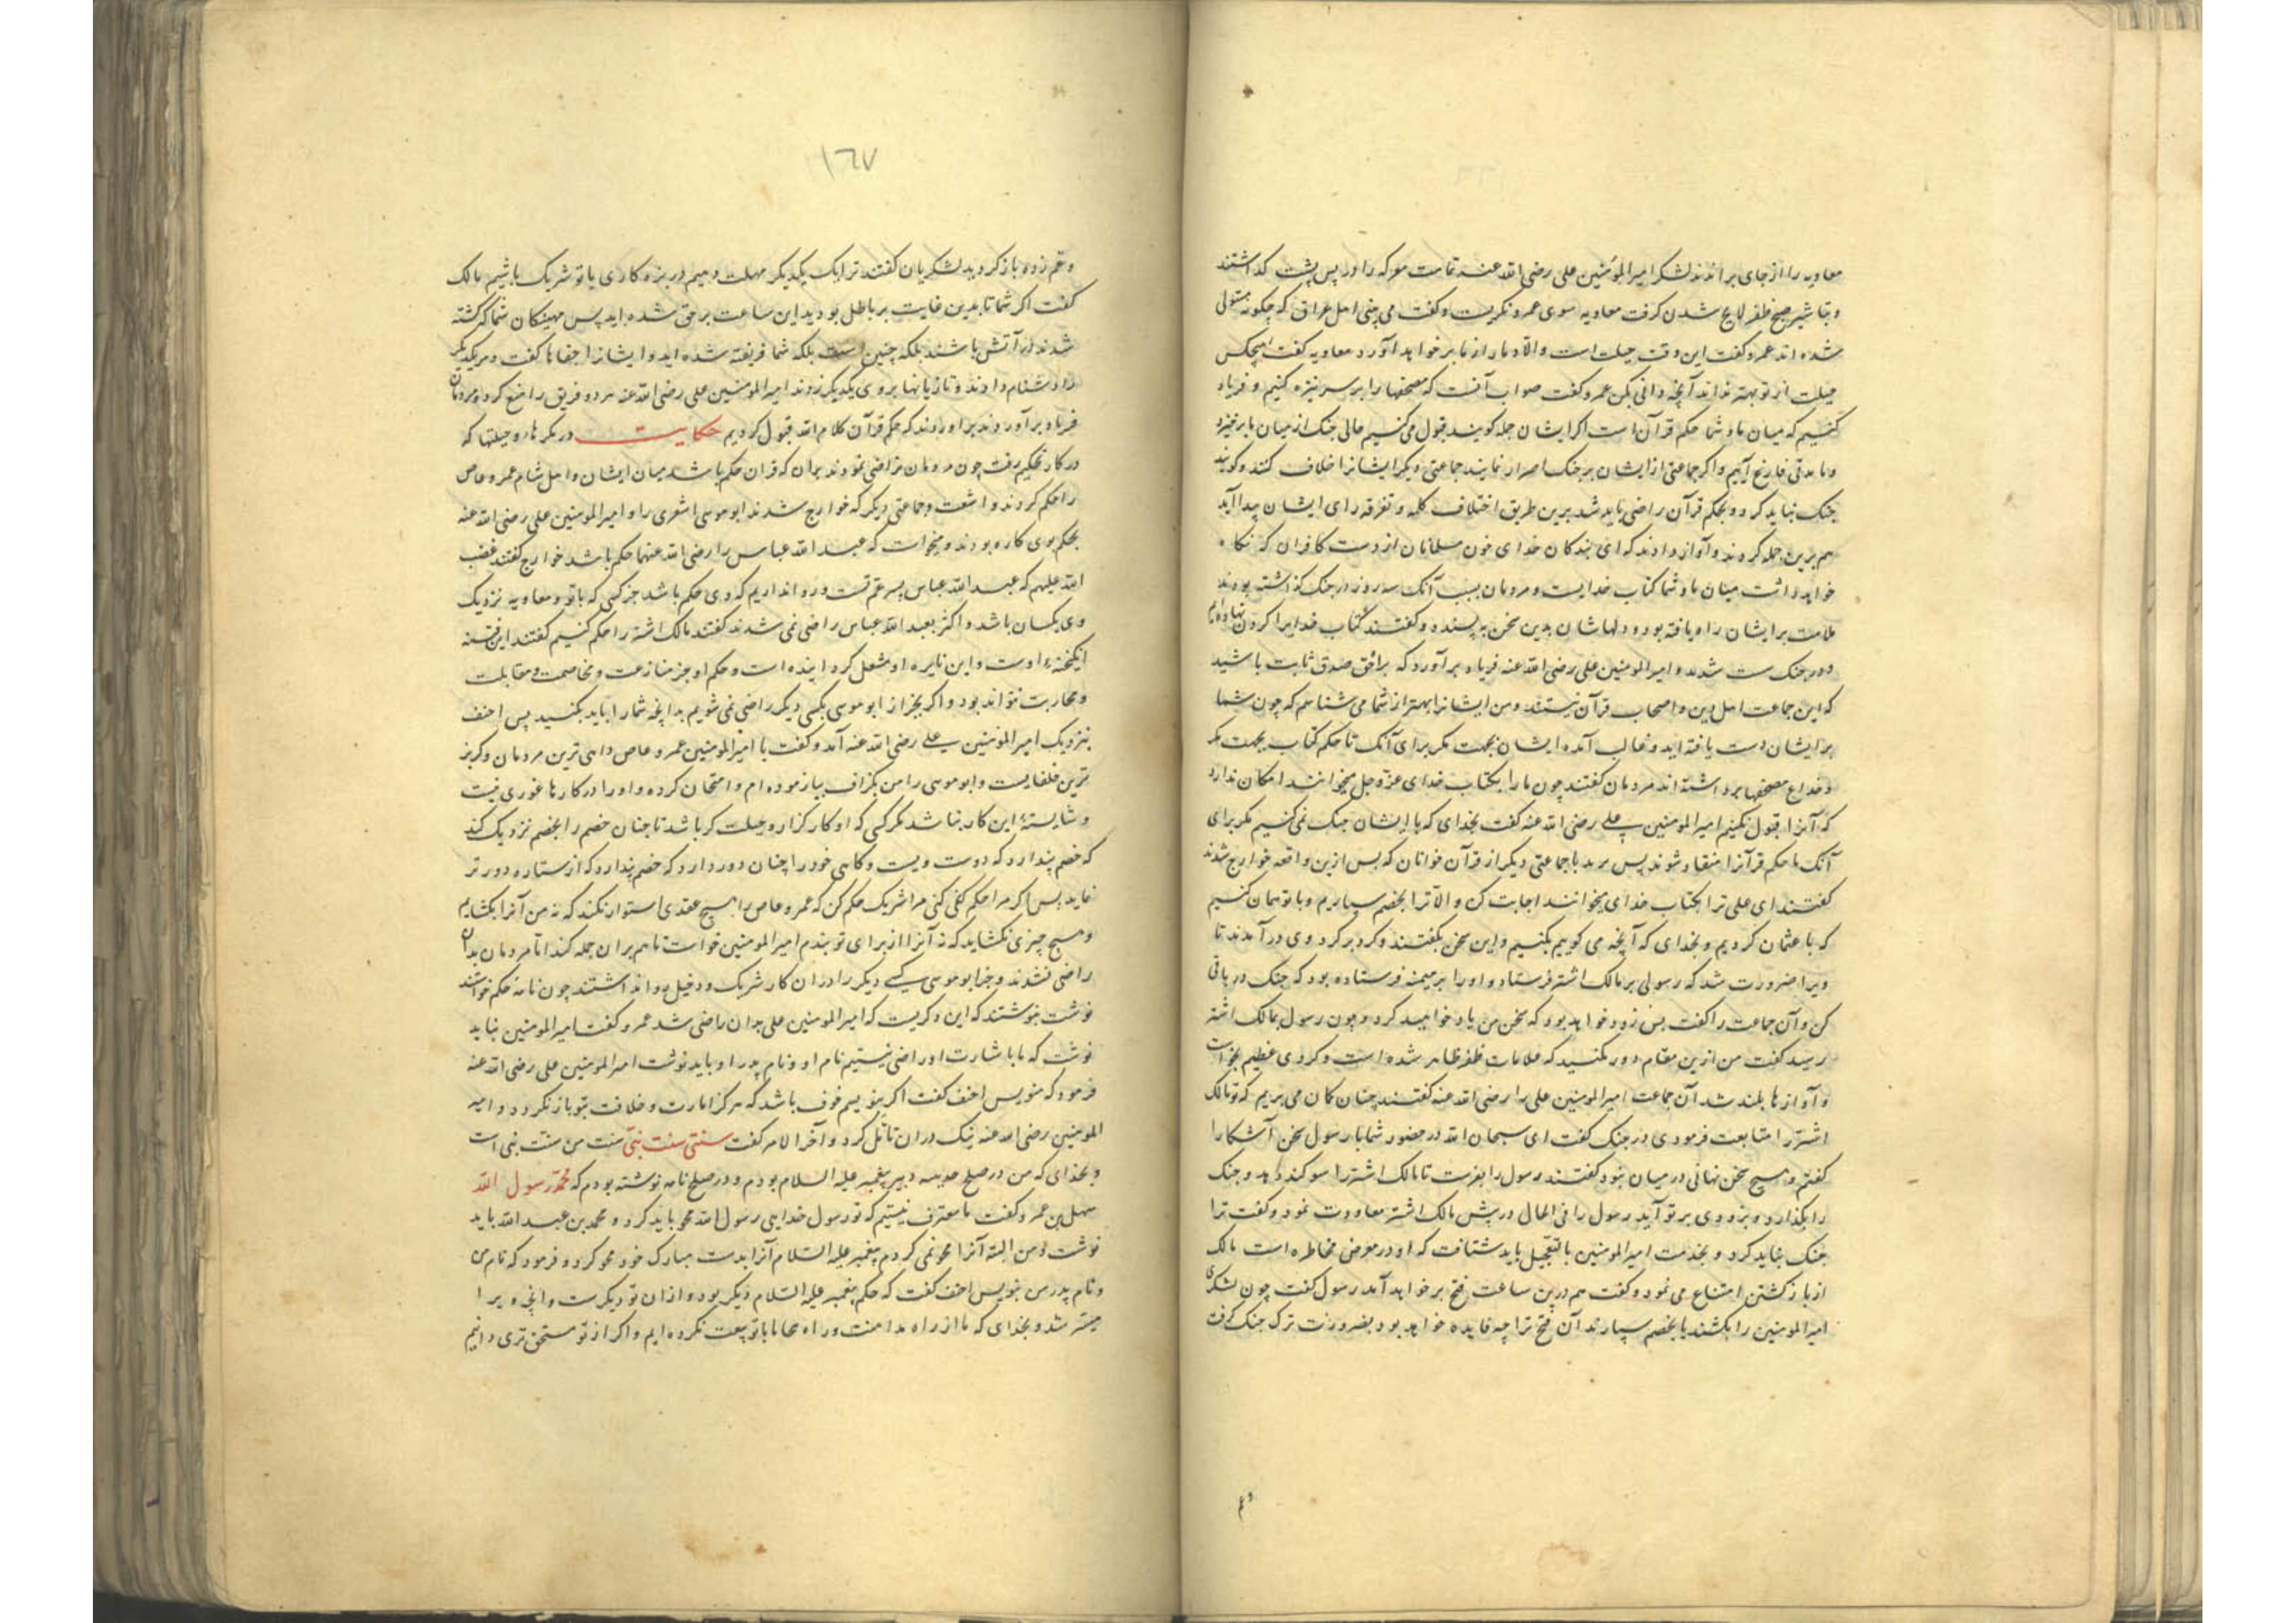 معاویه را از جای براندند لشکر امیرالمؤمنین علی رضی الله عنه تمامت معرکه را در پس پشت کذاشتند
و تباشیر صبح ظفر لایح شدن کرفت معاویه سوی عمرو نکریست و کفت می بینی اهل عراق که چکونه مستولی
شده اند عمرو کفت این وقت حیلت است والا دمار از ما بر خواهد آورد معاویه کفت هیچکس
حیلت از تو بهتر نداند آنچه دانی بکن عمرو کفت صواب آنست که مصحفها را بر سر نیزه کنیم و فریاد
کنیم که میان ما و شما حکم قرآن است اکر ایشان جمله کویند قبول می کنیم حالی جنک از میان ما برخیزد
و ما مدتی فارغ آییم و اکر جماعتی از ایشان بر جنک اصرار نمایند جماعتی دیکر ایشانرا خلاف کنند و کویند
جنک نباید کرد و بحکم قرآن راضی باید شد برین طریق اختلاف کلمه و تفرقه رای ایشان پیدا آید
هم برین جمله کردند و آواز دادند که ای بندکان خدای خون مسلمانان از دست کافران که نکاه
خواهد داشت میان ما و شما کتاب خدایست و مردمان بسبب آنک سه روز در جنک کذاشته بودند
ملامت بر ایشان راه یافته بود و دلهاشان بدین سخن بپسندد و کفتند کتاب خدایرا کردن نهاده ایم
و در جنک سست شدند و امیرالمومنین علی رضی الله عنه فریاد برآورد که برحق و صدق ثابت باشید
که این جماعت اهل دین و اصحاب قرآن نیستند و من ایشانرا بهتر از شما می شناسم که چون شما
بر ایشان دست یافته اید و غالب آمده ایشان بجهت مکر برای آنک تا حکم کتاب بجهت مکر
و خداع مصحفها برداشته اند مردمان کفتند چون ما را بکتاب خدای عز و جل میخوانند امکان ندارد
که آنرا قبول نکنیم امیرالمومنین علی رضی الله عنه کفت بخدای که با ایشان جنک نمی کنیم مکر برای
آنک تا حکم قرآنرا منقاد شوند پس با جماعتی دیکر از قرآن خوانان که پس ازین واقعه خوارج شدند
کفتند ای علی ترا بکتاب خدای میخوانند اجابت کن والا ترا بخصم سپاریم و با تو همان کنیم
که با عثمان کردیم و بخدای که آنچه می کوییم بکنیم و این سخن بکفتند و کرد بر کرد وی درآمدند تا
ویرا ضرورت شد که رسولی بر مالک اشتر فرستاد و او را بر میمنه فرستاده بود که جنک در باقی
کن و آن جماعت را کفت بس زود خواهد بود که سخن من یاد خواهید کرد و چون رسول بمالک اشتر
رسید کفت من ازین مقام دور مکنید که علامات ظفر ظاهر شده است و کردی عظیم بخواست
و آوازها بلند شد آن جماعت امیرالمومنین علی را رضی الله عنه کفتند چنان کمان می بریم که تو مالک
اشتر را متابعت فرمودی در جنک کفت ای سبحان الله در حضور شما با رسول سخن آشکارا
کفتم و هیچ سخن نهانی در میان نبود کفتند رسول را بفرست تا مالک اشتر را سوکند دهد و جنک
را بکذارد و بزودی بر تو آید رسول را فی الحال در پیش مالک اشتر معاودت نمود و کفت ترا
جنک نباید کرد و بخدمت امیرالمومنین بتعجیل باید شتافت که او در معرض مخاطره است مالک
از بازکشتن امتناع می نمود و کفت هم درین ساعت فتح بر خواهد آمد رسول کفت چون لشکری
امیرالمومنین را بکشند یا بخصم سپارند آن فتح ترا چه فایده خواهد بود بضرورت ترک جنک کرفت
و غم
١٦٧
و غم زده باز کردید لشکریان کفتند ترا یک یکدیکر مهلت دهیم در بزه کاری با تو شریک باشیم مالک
کفت اکر شما تا بدین غایت بر باطل بودید این ساعت بر حق شده اید پس مهینکان شما که کشته
شدند در آتش باشند بلکه چنین است بلکه شما فریفته شده اید و ایشانرا جفاها کفت و هر یکدیکر
را دشنام دادند و تازیانها بروی یکدیکر زدند امیرالمومنین علی رضی الله عنه هر دو فریق را منع کرد و مردمان
فریاد برآوردند که حکم قرآن کلام الله قبول کردیم حکایت در مکرها و حیلتها که
در کار تحکیم رفت چون مردمان تراضی نمودند بران که قران حکم باشد میان ایشان و اهل شام عمرو عاص
را حکم کردند و اشعث و جماعتی دیکر که خوارج شدند ابوموسی اشعری را و امیرالمومنین علی رضی الله عنه
بحکم وی کاره بودند و میخواست که عبد الله عباس را رضی الله عنهما حکم باشد خوارج کفتند غضب
الله علیهم که عبد الله عباس پسر عم تست و روا نداریم که وی حکم باشد جز کسی که با تو و معاویه نزدیک
وی یکسان باشد و اکثر بعبد الله عباس راضی نمی شدند کفتند مالک اشتر را حکم کنیم کفتند این فتنه
انکیخته اوست و این نایره او مشعل کردانیده است و حکم او جز منازعت و مخاصمت و مقابلت
و محاربت نتواند بود و اکر بجز از ابوموسی بکسی دیکر راضی نمی شویم بدانچه شما را باید بکنید پس احنف
بنزدیک امیرالمومنین علی رضی الله عنه آمد و کفت یا امیرالمومنین عمرو عاص داهی ترین مردمان و کربز
ترین خلقایست و ابوموسی را من بکزاف بیازموده ام و امتحان کرده و او را در کارها غوری نیست
و شایسته این کار نباشد مکر کسی که او کارکزار و حیلت کر باشد تا چنان خصم را بخصم نزدیک کند
که خصم پندارد که دوست ویست و کاهی خود را چنان دور دارد که خصم پندارد که از ستاره دورتر
نماید پس اکر مرا حکم کنی کنی مرا شریک حکم کن که عمرو عاص را هیچ عقدی استوار نکند که نه من آنرا بکشایم
و هیچ چیزی نکشاید که نه آنرا از برای تو بندم امیرالمومنین خواست تا هم بران جمله کند اما مردمان بدان
راضی نشدند و جز ابوموسی کسی دیکر را در ان کار شریک و دخیل روا نداشتند چون نامه حکم خواستند
نوشت بنوشتند که این ذکریست که امیرالمومنین علی بدان راضی شد عمرو کفت امیرالمومنین نباید
نوشت که ما باشارت او راضی نیستیم نام او و نام پدر او باید نوشت امیرالمومنین علی رضی الله عنه
فرمود که بنویس احنف کفت اکر بنویسم خوف باشد که هرکز امارت و خلافت بتو بازنکردد و امیر
المومنین رضی الله عنه نیک دران تامل کرد و آخر الامر کفت سنتی سنت نبی سنت من سنت نبی است
و بخدای که من در صلح حدیبیه دبیر پیغمبر علیه السلام بودم و در صلح نامه نوشته بودم که محمد رسول الله
سهل بن عمرو کفت ما معترف نیستیم که تو رسول خدایی رسول الله محو باید کرد و محمد بن عبد الله باید
نوشت و من البته آنرا محو نمی کردم پیغمبر علیه السلام آنرا بدست مبارک خود محو کرد و فرمود که نام من
و نام پدر من بنویس احنف کفت که حکم پیغمبر علیه السلام دیکر بود و ازان تو دیکرست و آنچه ویرا
میسر شد و بخدای که ما از راه مداهنت و راه محابا با تو بیعت نکرده ایم و اکر از تو مستحق تری دانیم